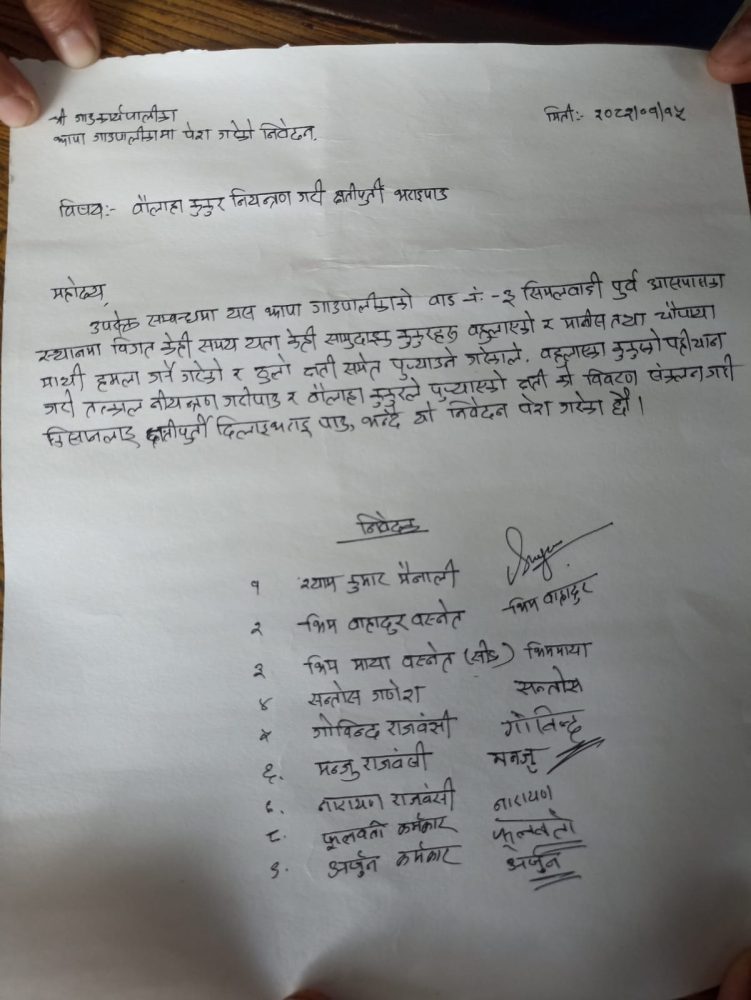 श्री गाउकार्यपालीका
झापा गाउपालीकामा पेश गरेको निवेदन.
मिती:- २०८२/०१/१५
विषय:- वौलाहा कुकुर नियन्त्रण गरी क्षतीपुर्ती भराइपाउ
महोदय,
उपरोक्त सम्वन्धमा यस झापा गाउपालीकाको वाड नं:-३ सिमलवाडी पुर्व आसपासका
स्थानमा विगत केही समय यता केही सामुदाइक कुकुरहरु वहुलाएको र मानीस तथा चौपाया
माथी हमला गर्ने गरेको र ठुलो क्षती समेत पुर्‍याउने गरेकाले, वहुलाएका कुकुरको पहीचान
गरी तत्काल नीयन्त्रण गरीपाउ र वौलाहा कुकुरले पुर्‍याएको क्षती को विवरण संकलन गरी
किसानलाइ क्षतीपुर्ती दिलाइभराइ पाउ, भन्दै यो निवेदन पेश गरेका छौं।
निवेदक
१ श्याम कुमार मैनाली
२ भिम वाहादुर वस्नेत भिम वाहादुर
३ भिम माया वस्नेत भिममाया
४ सन्तोस गणेश सन्तोस
५ गोविन्द राजवंसी गोविन्द
६. मन्जु राजवंशी मनजु
७. नारायण राजवंसी नारायण
८. फूलवती कर्मकार फूलवती
९. अर्जुन कर्मकार अर्जुन